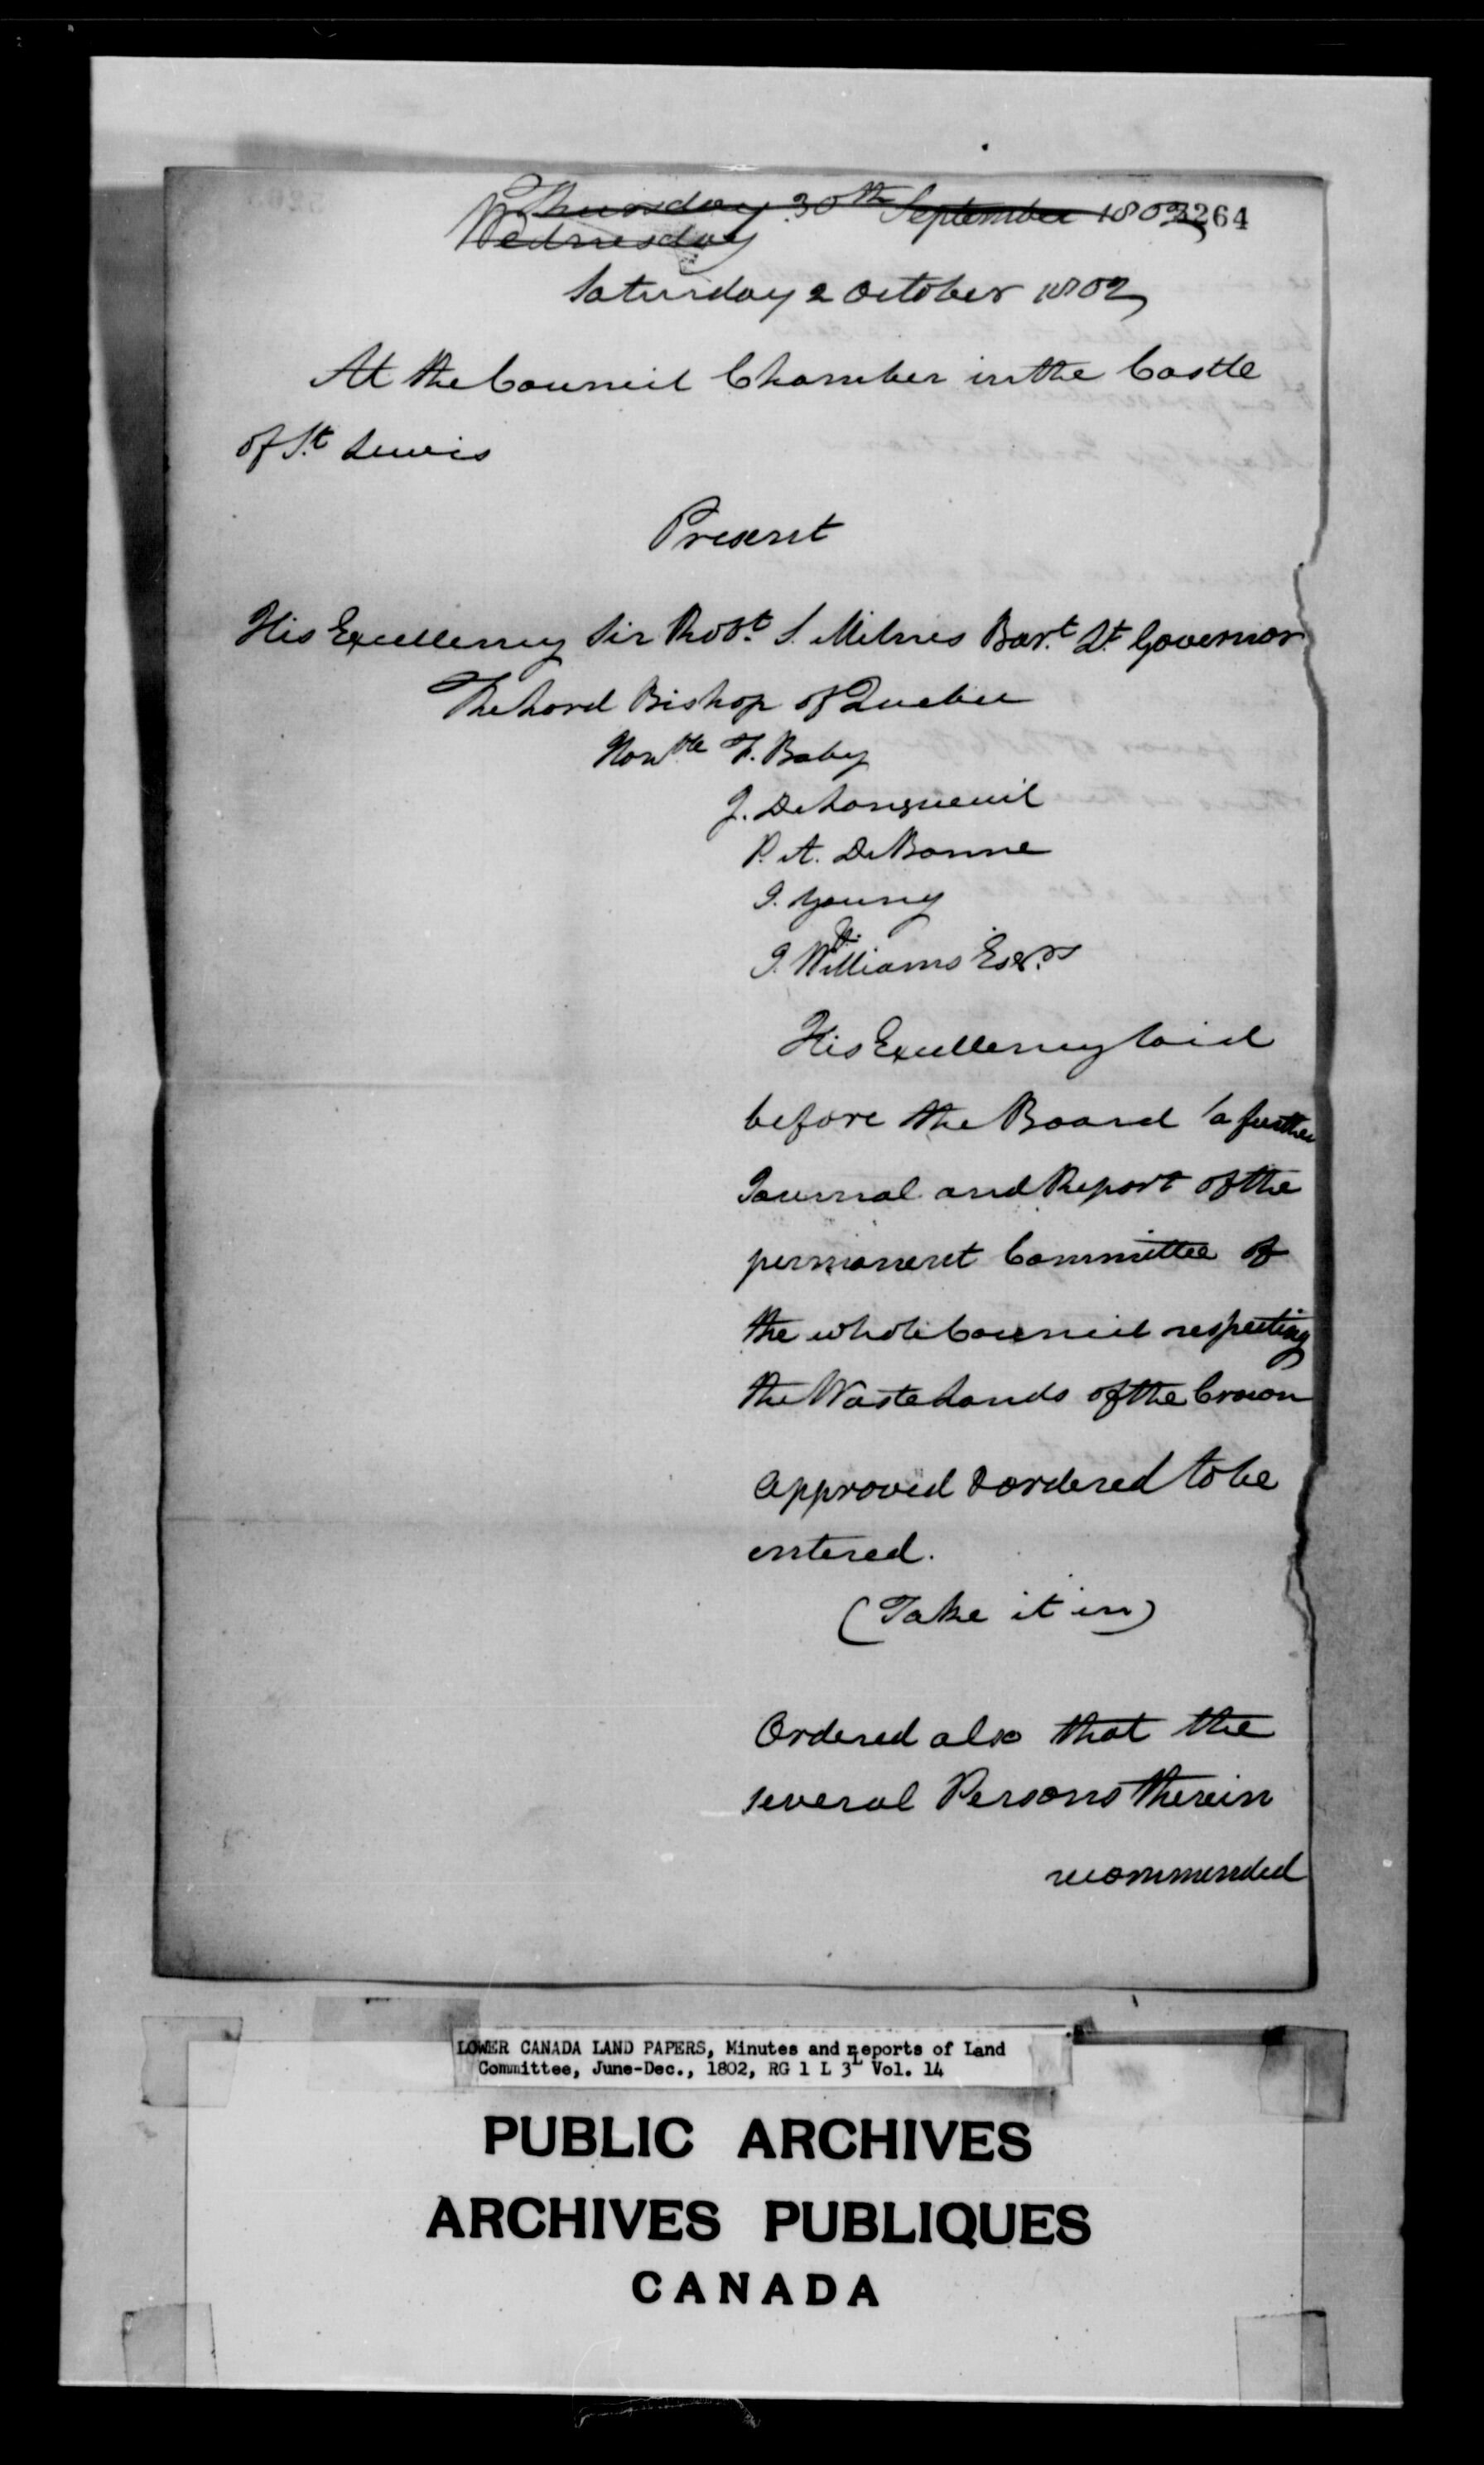 Thursday 30th September 1802
3264
Wednesday
Saturday 2 October 1802
At the Council Chamber in the Castle
of St Lewis
Present
His Excellency Sir Robt. S. Milnes Bart. Lt. Governor
The Lord Bishop of Quebec
Honble F. Baby
J. DeLongueuil
P. A. DeBonne
J. Young
J. Williams Esqrs
His Excellency laid
before the Board a further
Journal and Report of the
permanent Committee of
the whole Council respecting
the Waste Lands of the Crown
Approved & ordered to be
entered.
(Take it in)
Ordered also that the
several Persons therein
recommended
LOWER CANADA LAND PAPERS, Minutes and Reports of Land
Committee, June-Dec., 1802, RG 1 L 3L Vol. 14
PUBLIC ARCHIVES
ARCHIVES PUBLIQUES
CANADA